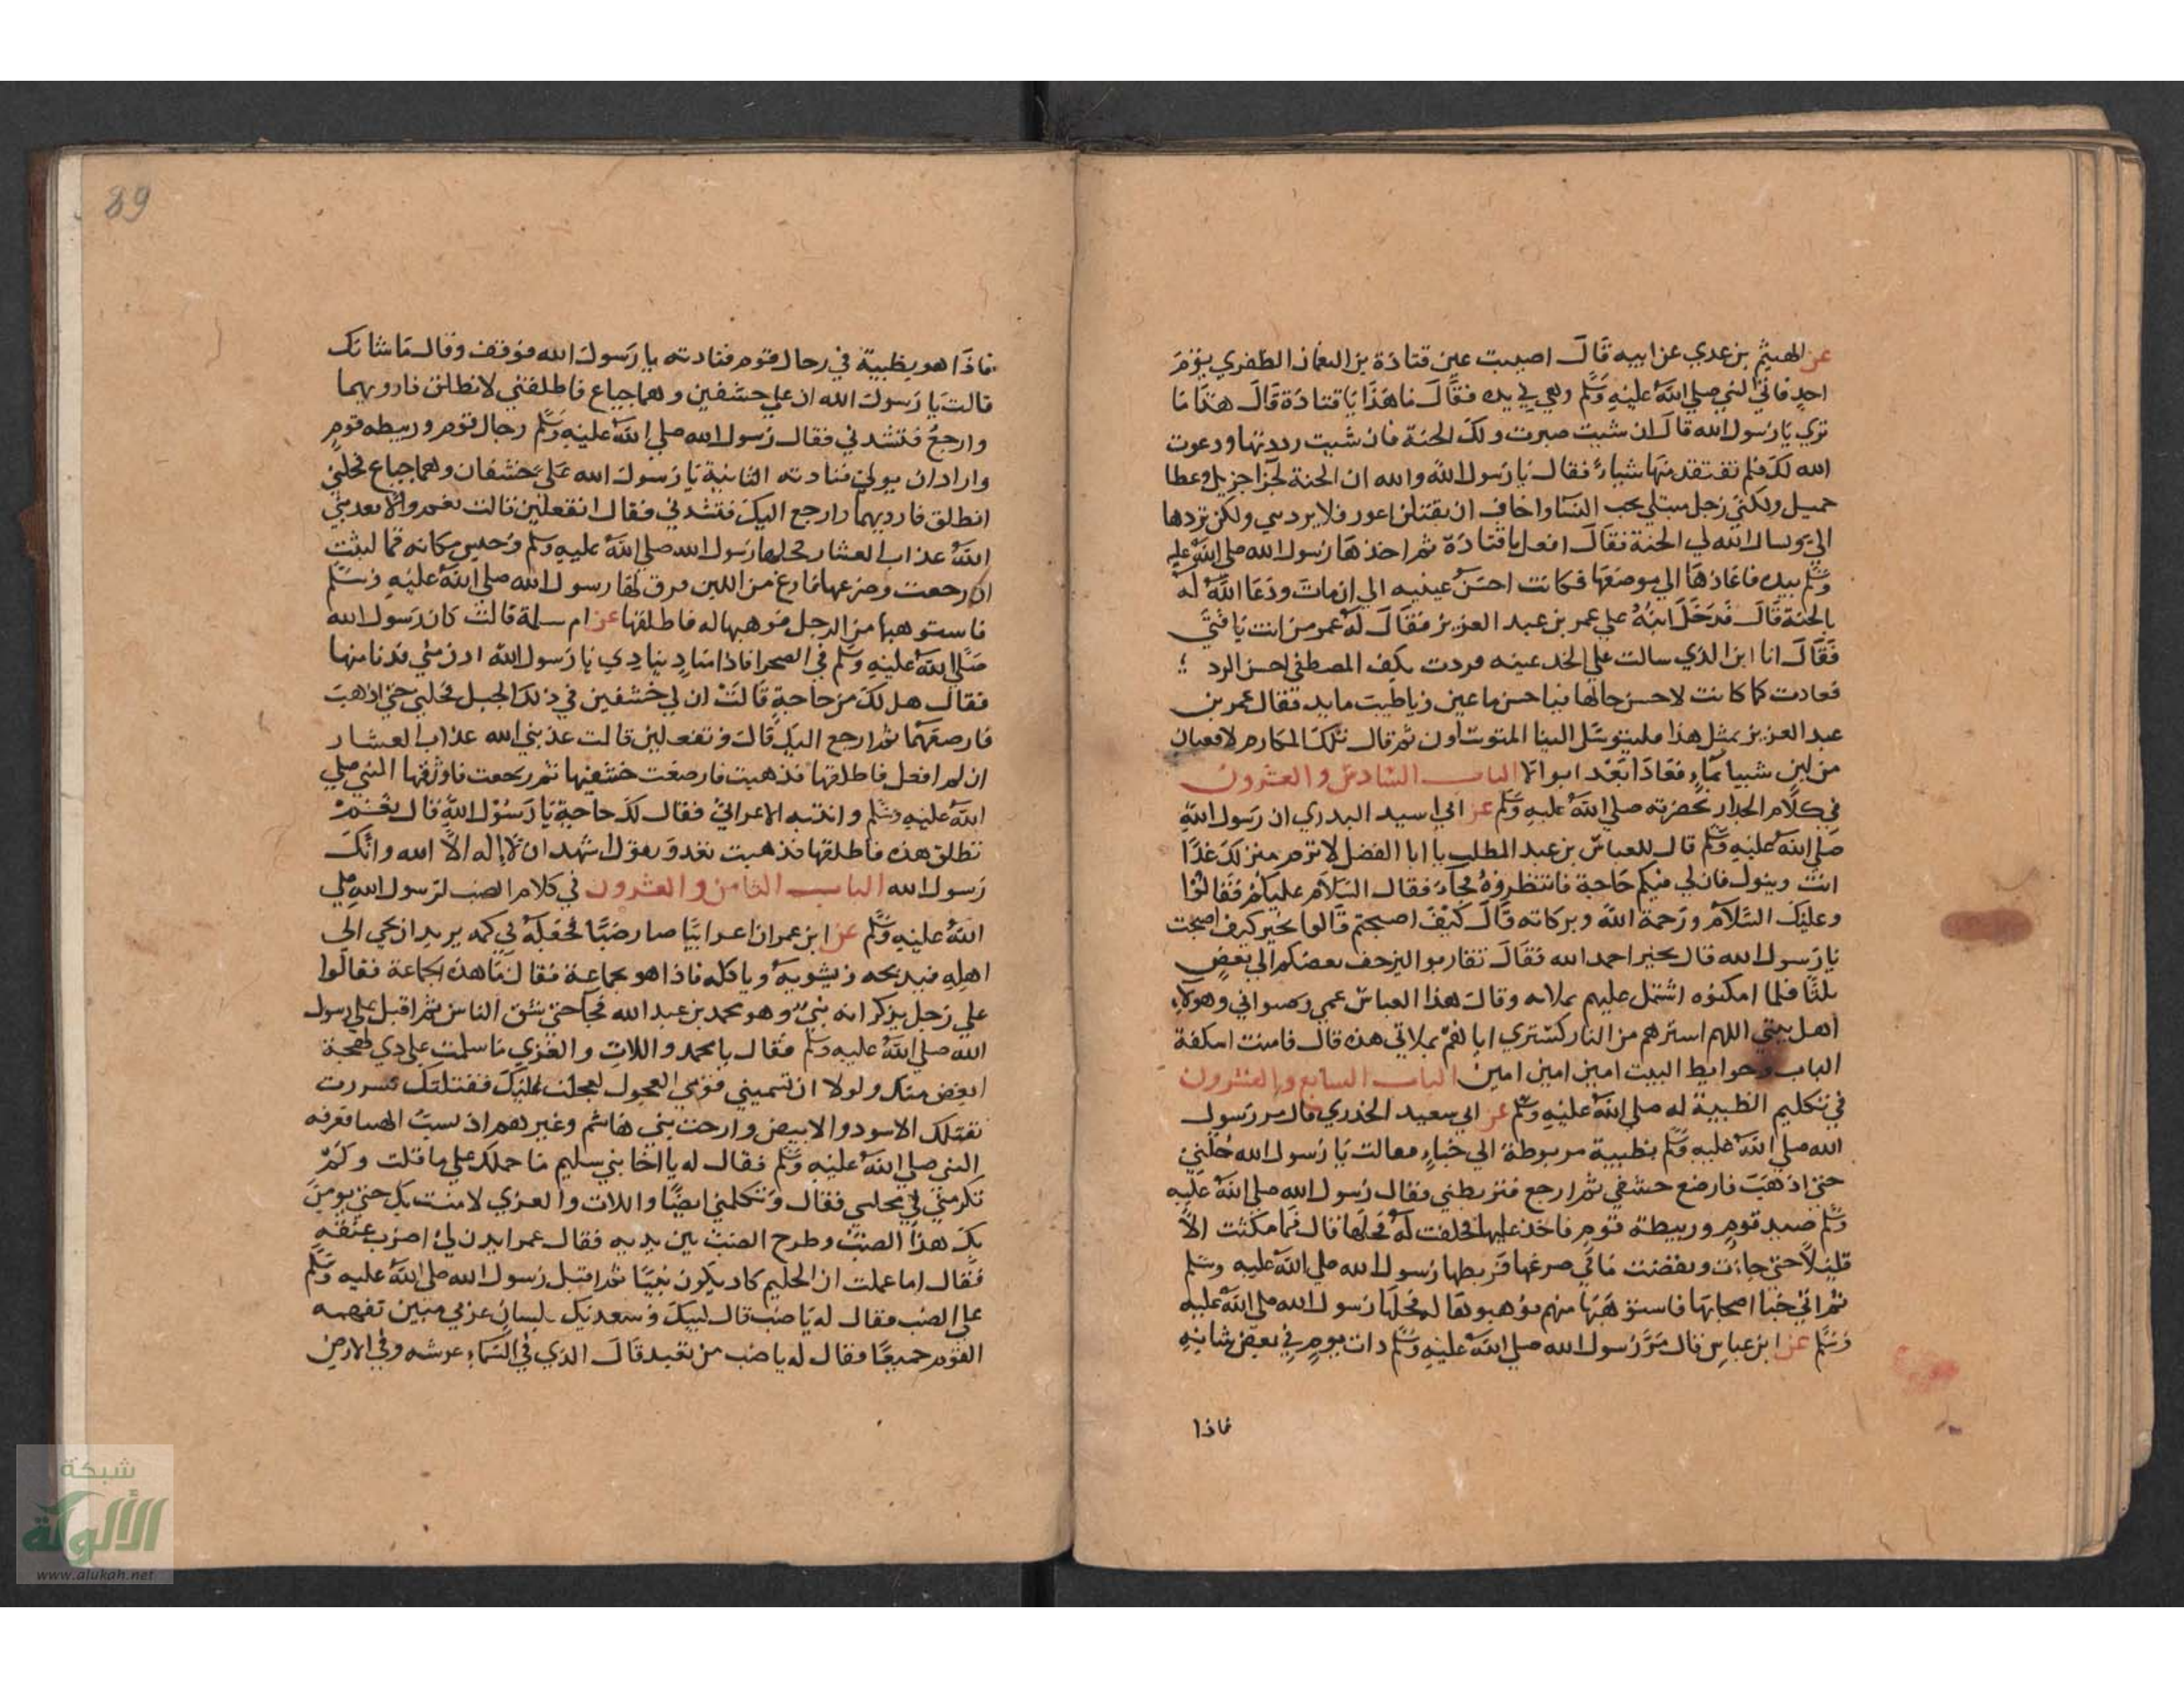 عن الهيثم بن عدي عن ابيه قال اصيبت عين قتادة بن النعمان الظفري يوم
احد فاتي النبي صلي الله عليه وسلم وهي في يده فقال ما هذا يا قتادة قال هذا ما
تري يا رسول الله قال ان شيت صبرت ولك الجنة فان شيت رددتها ودعوت
الله لك فلم تفتقد منها شياء فقال يا رسول الله والله ان الجنة لجزا جزيل وعطا
جميل ولكني رجل مبتلي بحب النسا واخاف ان يقتلن اعور فلا يردني ولكن تردها
الي وسال الله لي الجنة فقال افعل يا قتادة ثم اخذها رسول الله صلي الله عليه
وسلم بيده فاعادها الي موضعها فكانت احسن عينيه الي ان مات ودعا الله له
بالجنة قال فدخل ابنه علي عمر بن عبد العزيز فقال له عمر من انت يا فتي
فقال انا ابن الذي سالت علي الخد عينه فردت بكف المصطفي احسن الرد
فعادت كما كانت لاحسن حالها فيا حسن ما عين ويا طيب ما يد فقال عمر بن
عبد العزيز بمثل هذا فليتوسل الينا المتوسلون ثم قال تلك المكارم لا قعبان
من لبن شيبا بماء فعادا بعد ابوالا الباب السادس والعشرون
في كلام الجدار بحضرته صلي الله عليه وسلم عن ابي اسيد البدري ان رسول الله
صلي الله عليه وسلم قال للعباس بن عبد المطلب يا ابا الفضل لا ترم منزلك غدا
انت وبنوك فان لي فيكم حاجة فانتظروه فجاء فقال السلام عليكم فقالوا
وعليك السلام ورحمة الله وبركاته قال كيف اصبحتم قالوا بخير كيف اصبحت
يا رسول الله قال بخير احمد الله فقال تقاربوا ليزحف بعضكم الي بعض
ثلثا فلما امكنوه اشتمل عليهم بملاته وقال هذا العباس عمي وصنو ابي وهولاء
اهل بيتي اللهم استرهم من النار كستري اياهم بملاتي هذه قال فامنت اسكفة
الباب وحوايط البيت امين امين امين الباب السابع والعشرون
في تكليم الظبية له صلي الله عليه وسلم عن ابي سعيد الخدري قال مر رسول
الله صلي الله عليه وسلم بظبية مربوطة الي خباء فقالت يا رسول الله حلني
حتي اذهب فارضع خشفي ثم ارجع فتربطني فقال رسول الله صلي الله عليه
وسلم صيد قوم وربيطة قوم فاخذ عليها فحلفت له فحلها قال فما مكثت الا
قليلا حتي جاءت ونفضت ما في ضرعها فربطها رسول الله صلي الله عليه وسلم
ثم اتي خبا اصحابها فاستوهبها منهم فوهبوها له فحلها رسول الله صلي الله عليه
وسلم عن ابن عباس قال مر رسول الله صلي الله عليه وسلم ذات يوم في بعض شانه
فاذا
89
فاذا هو بظبية في رحال قوم فنادته يا رسول الله فوقف وقال ما شانك
قالت يا رسول الله ان علي خشفين وهما جياع فاطلقني لانطلق فارويهما
وارجع فتشدني فقال رسول الله صلي الله عليه وسلم رحال قوم وربيطه قوم
واراد ان يولي فنادته الثانية يا رسول الله علي خشفان وهما جياع فحلني
انطلق فارويهما وارجع اليك فتشدني فقال اتفعلين قالت نعم والا بعذبني
الله عذاب العشار فحلها رسول الله صلي الله عليه وسلم وجلس مكانه فما لبثت
ان رجعت وضرعها فارغ من اللبن فرق لها رسول الله صلي الله عليه وسلم
فاستوهبها من الرجل فوهبها له فاطلقها عن ام سلمة قالت كان رسول الله
صلي الله عليه وسلم في الصحرا فاذا مناد ينادي يا رسول الله ادن مني فدنا منها
فقال هل لك من حاجة قالت ان لي خشفين في ذلك الجبل فحلني حتي اذهب
فارضعهما ثم ارجع اليك قال وتفعلين قالت عذبني الله عذاب العشار
ان لم افعل فاطلقها فذهبت فارضعت خشفيها ثم رجعت فاوثقها النبي صلي
الله عليه وسلم وانتبه الاعرابي فقال لك حاجة يا رسول الله قال نعم
تطلق هذه فاطلقها فذهبت تعدو وتقول اشهد ان لا اله الا الله وانك
رسول الله الباب الثامن والعشرون في كلام الضب لرسول الله صلي
الله عليه وسلم عن ابن عمر ان اعرابيا صار ضبا فجعله في كمه يريد ان يجي الي
اهله فيذبحه ويشويه وياكله فاذا هو بجماعة فقال ما هذه الجماعة فقالوا
علي رجل يذكر انه نبي وهو محمد بن عبد الله فجا حتي شق الناس ثم اقبل علي رسول
الله صلي الله عليه وسلم فقال يا محمد واللات والعزي ما سلمت علي ذي لهجة
ابغض منك ولولا ان تسميني قومي العجول لعجلت عليك فقتلتك فسررت
بقتلك الاسود والابيض وارحت بني هاشم وغيرهم اذ لسبت الهنا فعرفه
النبي صلي الله عليه وسلم فقال له يا اخا بني سليم ما حملك علي ما قلت ولم
تكرمني في مجلسي فقال وتكلمني ايضا واللات والعزي لا امنت بك حتي يومن
بك هذا الضب وطرح الضب بين يديه فقال عمر ايذن لي اضرب عنقه
فقال اما علمت ان الحليم كاد يكون نبيا ثم اقبل رسول الله صلي الله عليه وسلم
علي الضب فقال له يا ضب قال لبيك وسعديك بلسان عربي مبين تفهمه
القوم جميعا فقال له يا ضب من تعبد قال الذي في السماء عرشه وفي الارض
شبكة
الألوكة
www.alukah.net